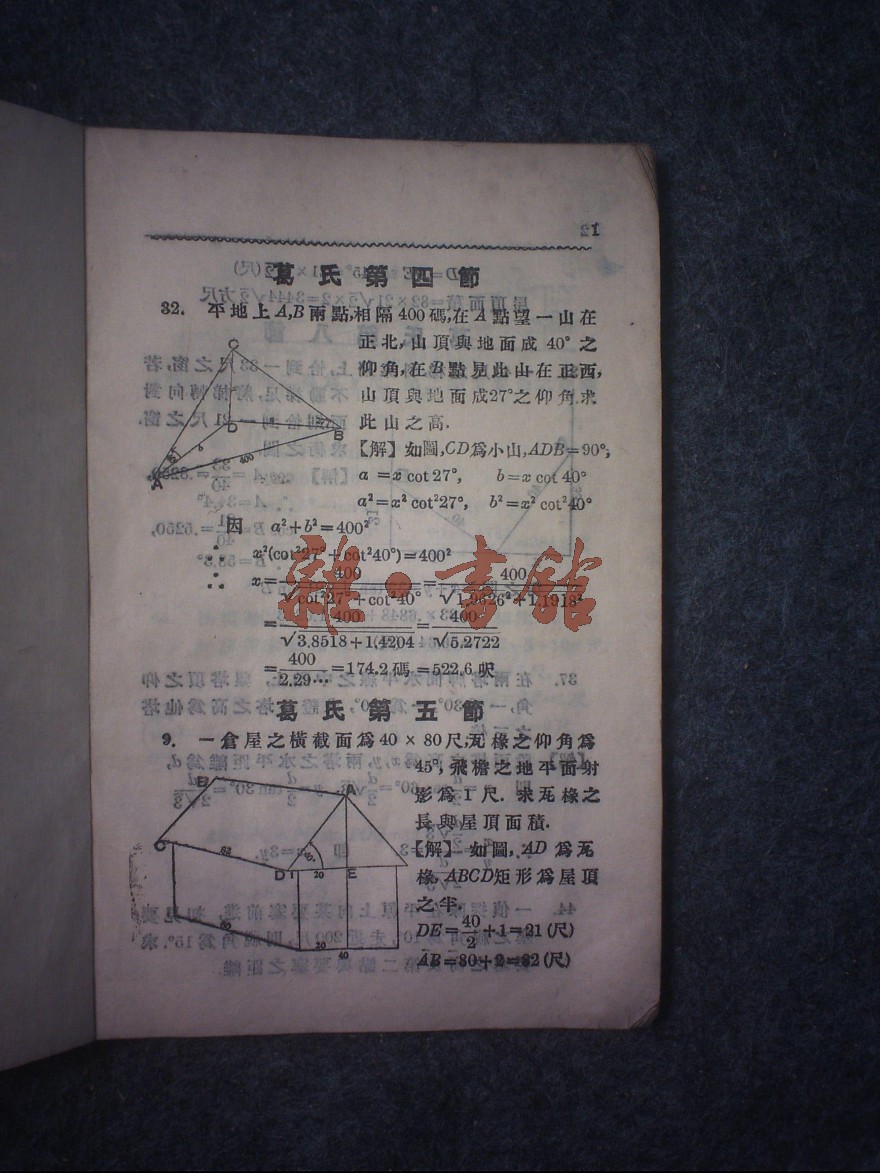 葛氏第四節
32. 平地上A,B兩點,相隔400碼,在A點望一山在
正北,山頂與地面成40°之
仰角,在B點見此山在正西,
山頂與地面成27°之仰角.求
此山之高.
【解】如圖,CD爲小山,ADB=90°;
a=x cot 27°, b=x cot 40°
a²=x² cot²27°, b²=x² cot²40°
因 a²+b²=400²
∴ x²(cot²27°+cot²40°)=400²
∴ x=400/√cot²27°+cot²40°=400/√1.9626²+1.1918²
=400/√3.8518+1.4204=400/√5.2722
=400/2.29…=174.2碼=522.6呎
C
D
B
A
400
葛氏第五節
9. 一倉屋之橫截面爲40×80尺,瓦椽之仰角爲
45°,飛檐之地平面射
影爲1尺.求瓦椽之
長與屋頂面積.
【解】如圖,AD爲瓦
椽,ABCD矩形爲屋頂
之半.
DE=40/2+1=21(尺)
AB=80+2=82(尺)
B
A
C
82
D
1
20
E
45°
80
20
40
雜·書館